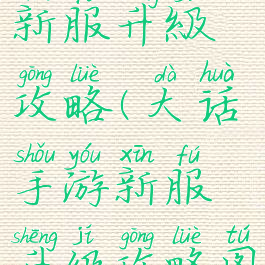 新服升級
gōng lüè dà huà
攻略(大话
shǒu yóu xīn fú
手游新服
shēng jí gōng lüè tú
升级攻略图